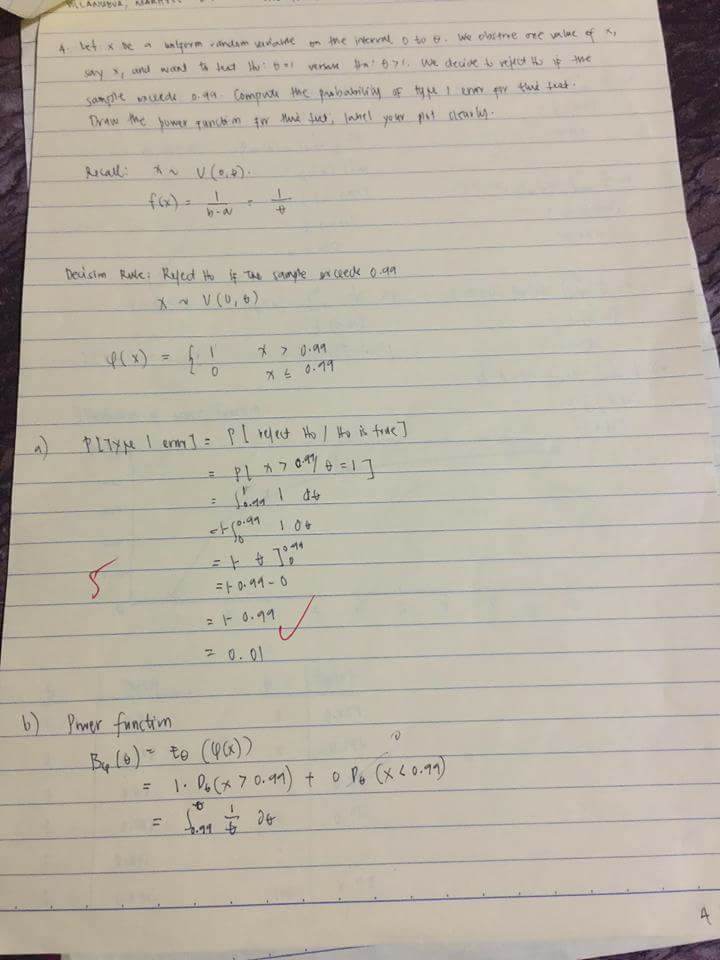 4. Let x be a uniform random variable on the interval 0 to θ. We observe one value of x,
say x, and want to test H₀: θ=1 versus Ha: θ>1. We decide to reject H₀ if the
sample exceeds 0.99. Compute the probability of type 1 error for this test.
Draw the power function for this test, label your plot clearly.
Recall: x ~ U(0,θ).
f(x) = 1/b-a = 1/θ
Decision Rule: Reject H₀ if the sample exceeds 0.99
x ~ U(0,θ)
φ(x) = { 1 x > 0.99
0 x ≤ 0.99
a) P[Type 1 error] = P[ reject H₀ / H₀ is true]
= P[ x > 0.99/ θ = 1 ]
= ∫₀.₉₉¹ 1 dθ
= 1-∫₀^0.99 1 dθ
= 1- θ ]₀^0.99
= 1- 0.99 - 0
5
= 1- 0.99
= 0.01
b) Power function
Bφ(θ) = Eθ (φ(x))
0
= 1. Pθ(x > 0.99) + 0 Pθ (x < 0.99)
= ∫₀.₉₉^θ 1/θ ∂θ
4